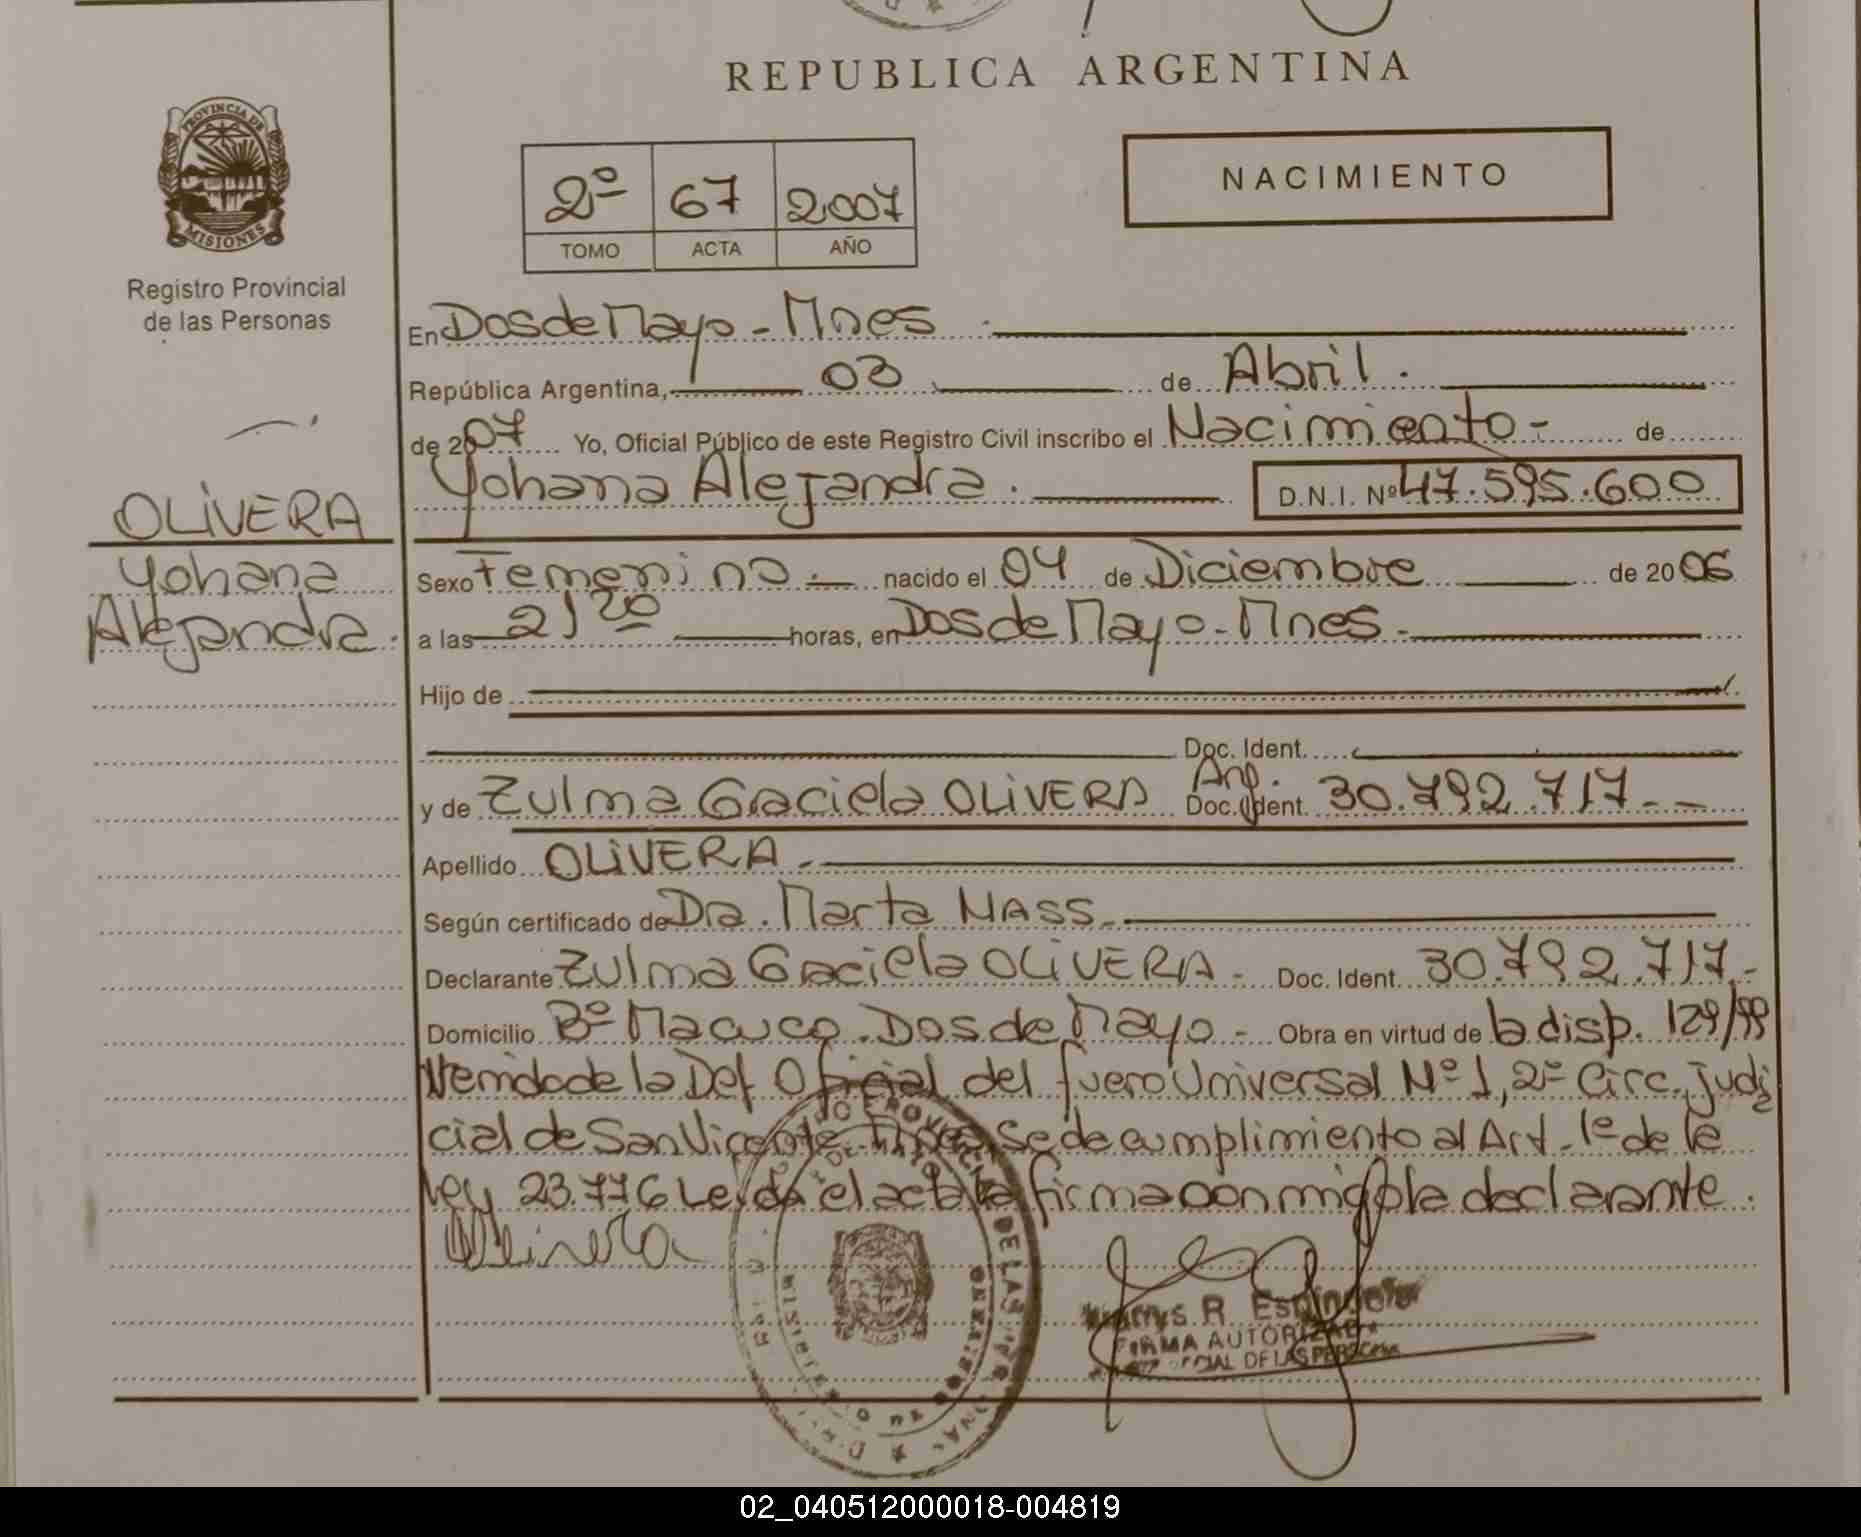 REPUBLICA ARGENTINA
PROVINCIA DE
MISIONES
Registro Provincial
de las Personas
2º 67 2007
TOMO ACTA AÑO
NACIMIENTO
En Dos de Mayo - Mnes
República Argentina, 03 de Abril.
de 2007 Yo, Oficial Público de este Registro Civil inscribo el Nacimiento - de
Yohana Alejandra. D.N.I. Nº 47.595.600
OLIVERA
Yohana
Alejandra.
Sexo Femenino.- nacido el 04 de Diciembre de 2006
a las 21 20 horas, en Dos de Mayo - Mnes.
Hijo de
Doc. Ident.
y de Zulma Graciela OLIVERA Arg. Doc. Ident. 30.792.717--
Apellido OLIVERA.
Según certificado de Dra. Marta MASS.
Declarante Zulma Graciela OLIVERA - Doc. Ident. 30.792.717.-
Domicilio Bº Macuco. Dos de Mayo - Obra en virtud de la disp. 129/99
Venida de la Def Oficial del fuero Universal Nº 1, 2º Circ. Judi
cial de San Vicente Mnes, se da cumplimiento al Art. 1º de la
ley 23.776 Leída el acta la firma con migo la declarante.
Olivera
R. Espindola
FIRMA AUTORIZADA
DE LAS PERSONAS
MINISTERIO DE GOBIERNO
02_040512000018-004819